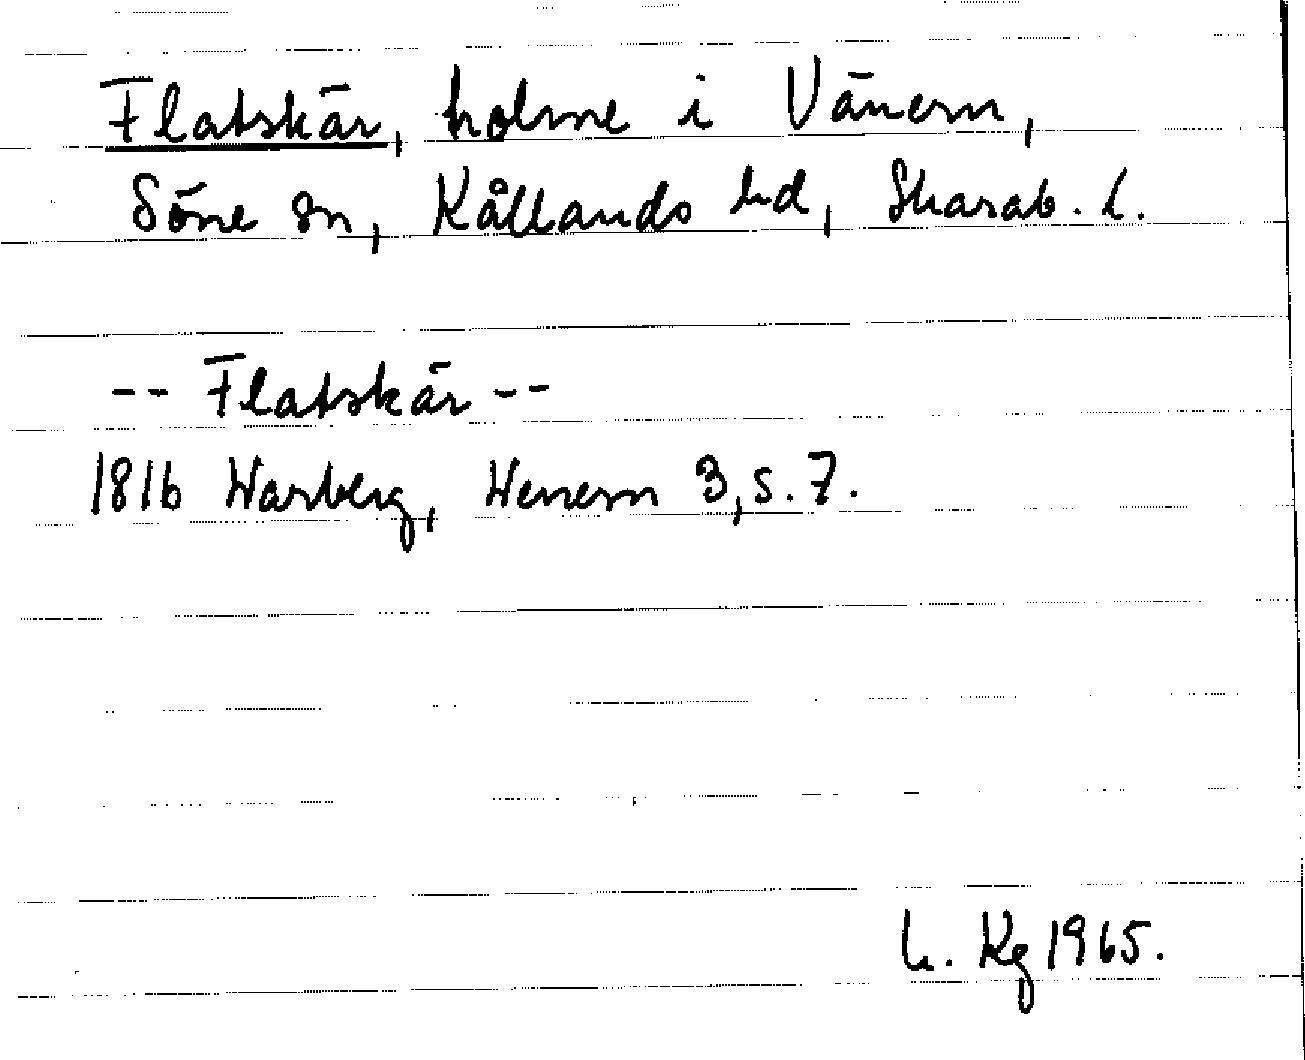 Flatskär, holme i Vänern,
Söne sn, Kållands hd, Skarab. l.
-- Flatskär --
1816 Warberg, Wenern 3, s. 7.
L. Kg 1965.